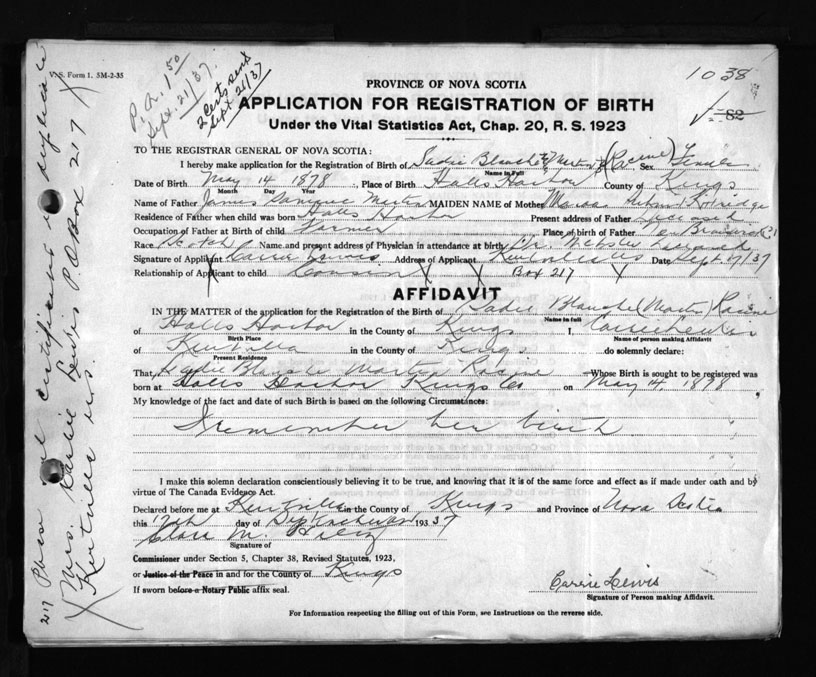 V. S. Form 1. 5M-2-35
P. A. 1 50
Sept. 21/37.
2 Certs sent
Sept. 21/37
1038
82
PROVINCE OF NOVA SCOTIA
APPLICATION FOR REGISTRATION OF BIRTH
Under the Vital Statistics Act, Chap. 20, R. S. 1923
TO THE REGISTRAR GENERAL OF NOVA SCOTIA:
I hereby make application for the Registration of Birth of Sadie Blanche (Martin) (Racine) Sex Female
Name in Full
Date of Birth May 14 1878, Place of Birth Halls Harbor County of Kings
Month Day Year
Name of Father James Martin MAIDEN NAME of Mother
Residence of Father when child was born Halls Harbor Present address of Father Deceased
Occupation of Father at Birth of child Farmer Place of birth of Father
Race Scotch Name and present address of Physician in attendance at birth Dr. Webster Deceased
Signature of Applicant Carrie Lewis Address of Applicant Kentville NS Date Sept. 17/37
Relationship of Applicant to child Cousin X X Box 217 X
AFFIDAVIT
IN THE MATTER of the application for the Registration of the Birth of Sadie Blanche (Martin) Racine
Name in full
of Halls Harbor in the County of Kings I, Carrie Lewis
Birth Place Name of person making Affidavit
of Kentville in the County of Kings do solemnly declare:
Present Residence
That Blanche Martin Racine Whose Birth is sought to be registered was
born at Halls Harbor Kings Co on May 14, 1878,
My knowledge of the fact and date of such Birth is based on the following Circumstances:
I remember her birth
I make this solemn declaration conscientiously believing it to be true, and knowing that it is of the same force and effect as if made under oath and by
virtue of The Canada Evidence Act.
Declared before me at Kentville in the County of Kings and Province of Nova Scotia
this 17th day of September 1937
Clara M.
Signature of
Commissioner under Section 5, Chapter 38, Revised Statutes, 1923,
or Justice of the Peace in and for the County of Kings
If sworn before a Notary Public affix seal.
Carrie Lewis
Signature of Person making Affidavit.
For Information respecting the filling out of this Form, see Instructions on the reverse side.
217 Please certificates in duplicate
X Mrs. Carrie Lewis P.O. Box 217 X
Kentville N.S.